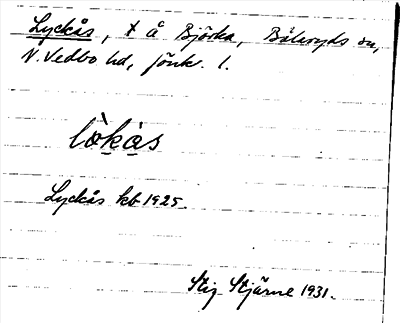 Lyckås, x å Björka, Bälaryds sn,
N. Vedbo hd, Jönk. l.
lo̊kås
Lyckås kb 1925
Stig Stjärne 1931.